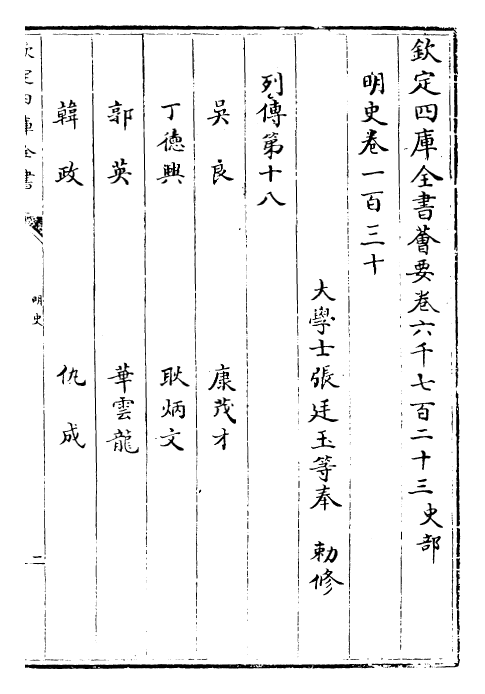 欽定四庫全書薈要卷六千七百二十三史部
明史卷一百三十
大學士張廷玉等奉 勅修
列傳第十八
吳良 康茂才
丁德興 耿炳文
郭英 華雲龍
韓政 仇成
欽定四庫全書 明史 二